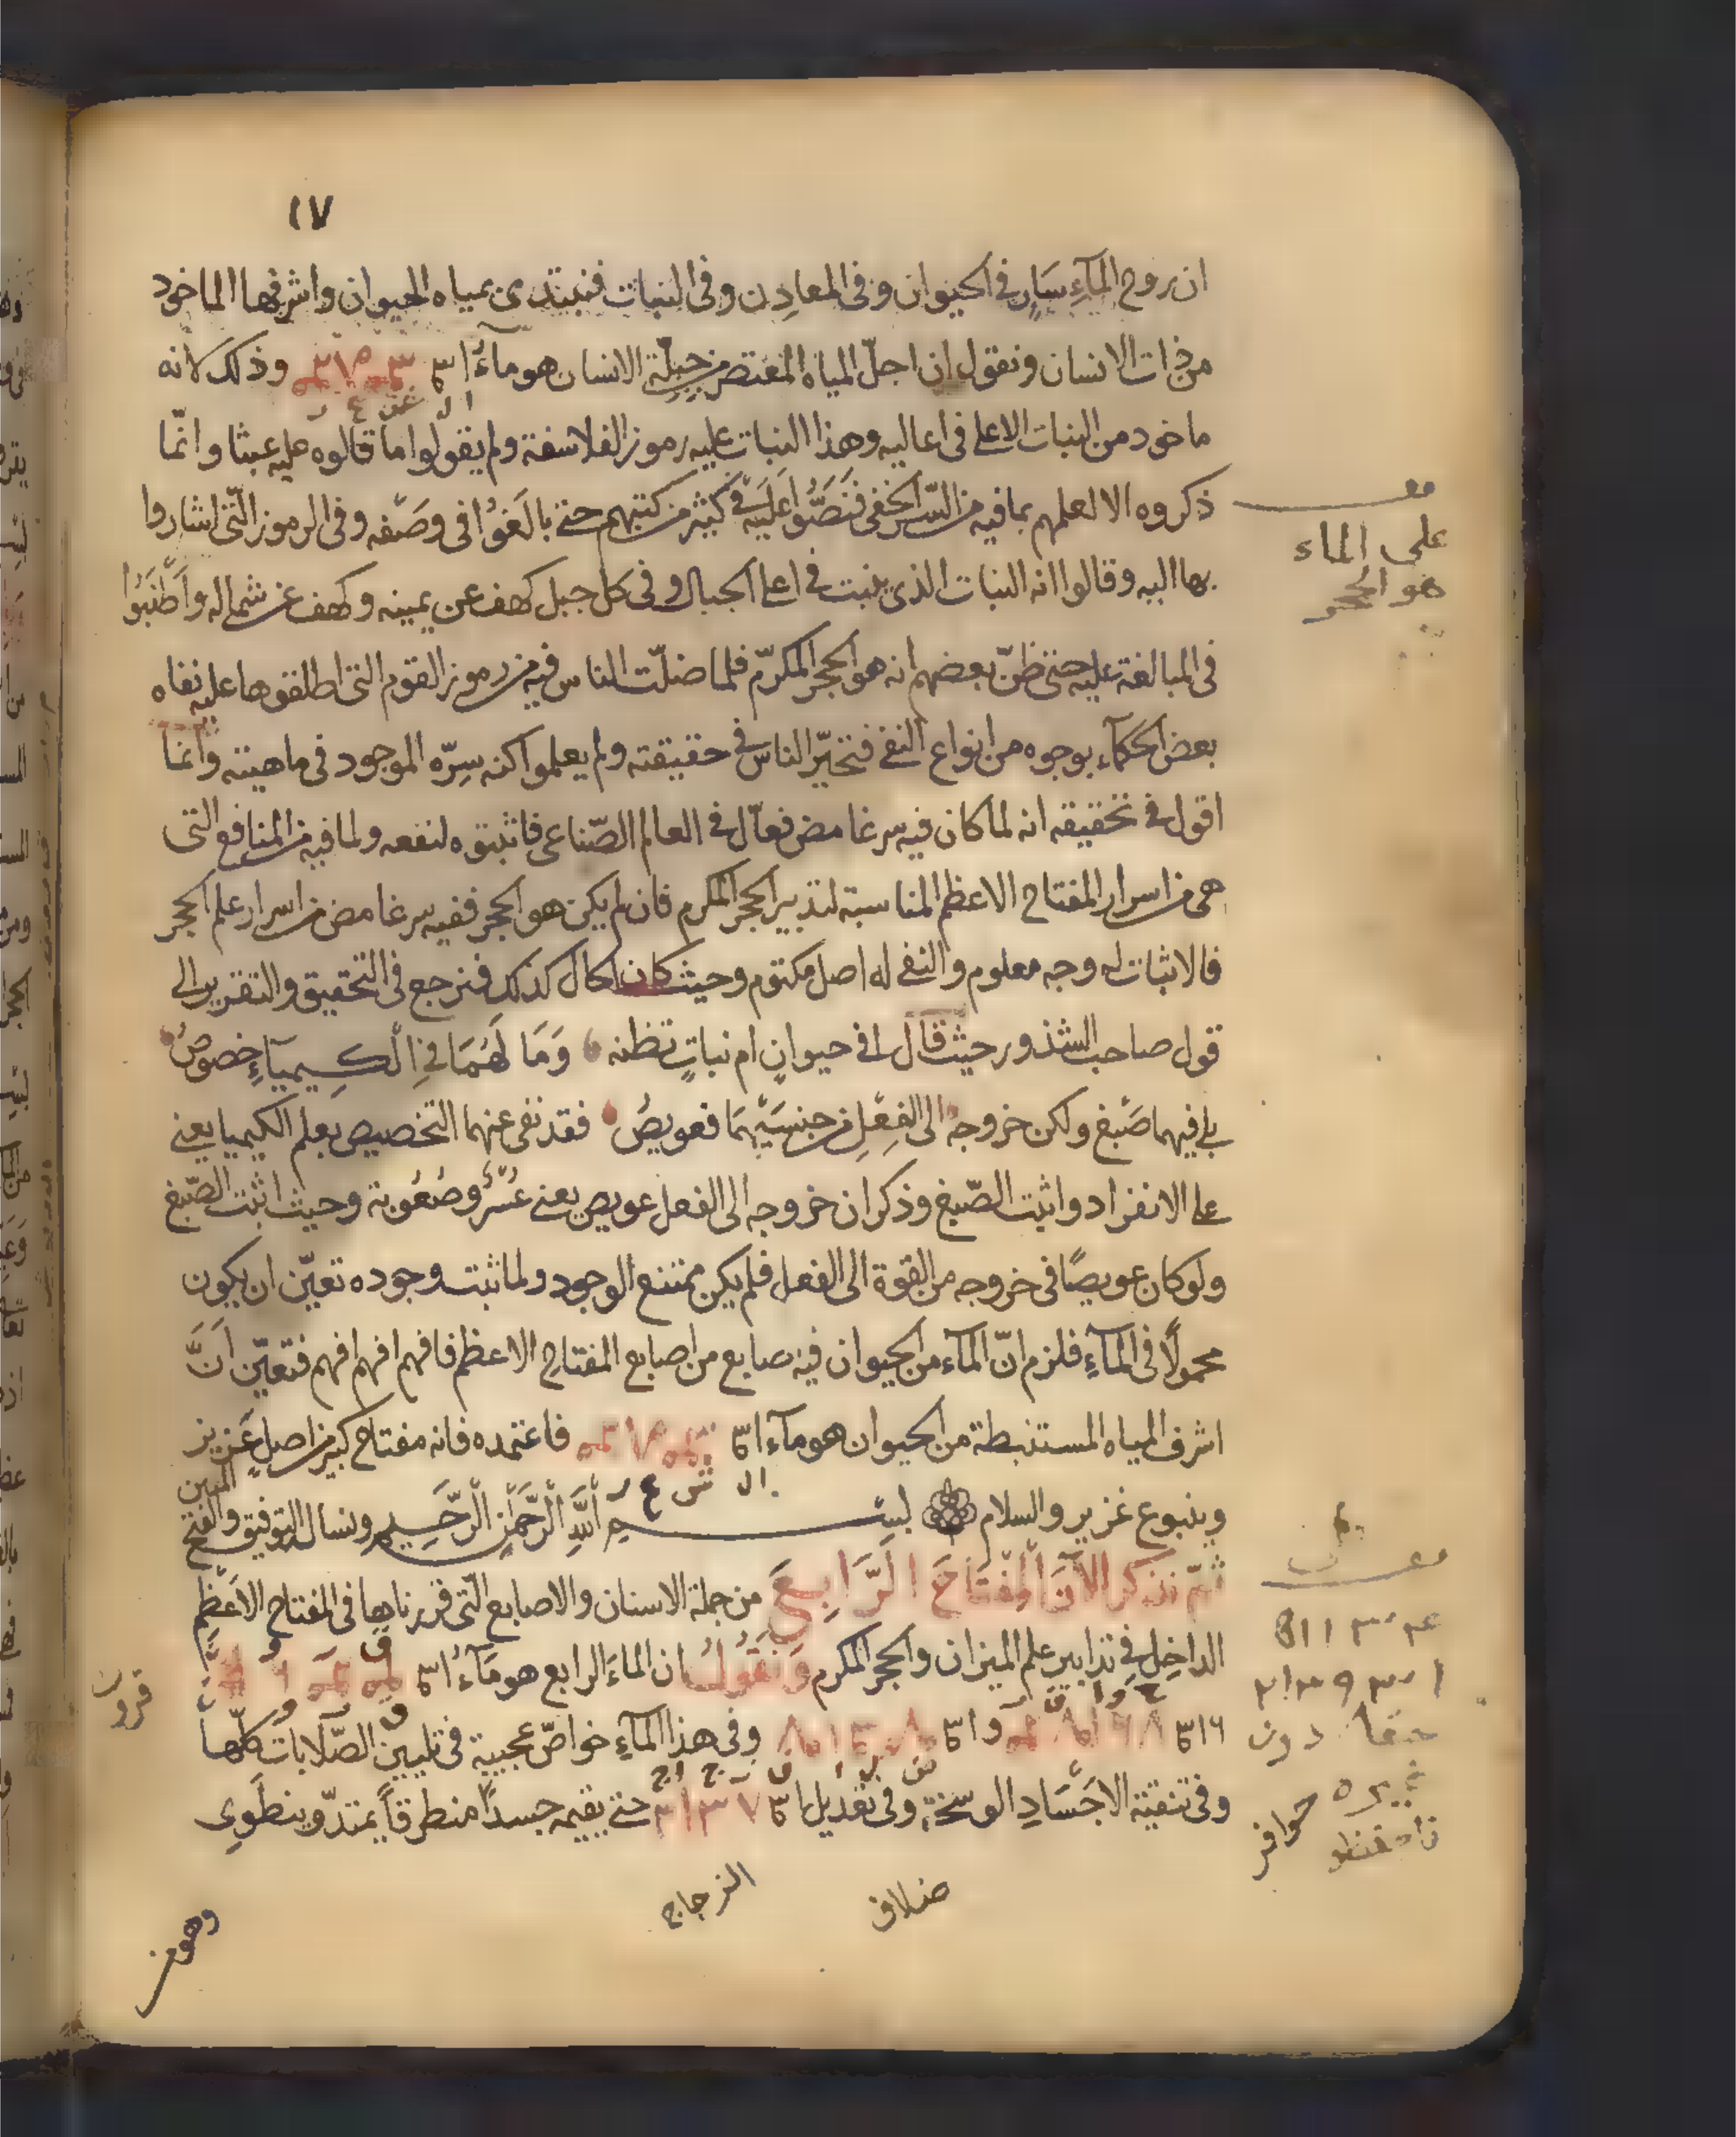 ١٧
ان روح المآءِ سَارٍ في الحيوان وفي المعادِن وفي النبات فنبتدى بمياه الحيوان واشرفها الماخود
من ذات الانسان ونقول ان اجلّ المياه المعتصر من جبلّة الانسان هو ماءُ وذلك لانه
ال ش ع ر
ماخود من النبات الاعلى في اعاليه وهذا النبات عليه رموز الفلاسفة ولم يقولوا ما قالوه عليه عبثا وانّما
ذكروه الا لعلمهم بما فيه من السّر الخفى فنَصَّوُا عَلَيْه في كثير من كتبهم حتى بالَغوُا في وصَفه وفي الرموز الّتى اشاروا
بها اليه وقالوا انه النبات الذى ينبت في اعلى الجبال وفي كل جبل كهف عن يمينه وكهف عن شماله واَطْنَبُوا
في المبالغة عليه حتى ظنّ بعضهم انه هو الحجر المكرّم فلما ضلّت الناس فيه من رموز القوم التى اطلقوها عليه نفاه
بعض الحكمآء بوجوه من انواع النفى فتحيّر الناس في حقيقته ولم يعلموا كنه سِرّه الموجود في ماهيته وانما
اقول في تحقيقه انه لما كان فيه سر غامض فعاّل في العالم الصّناعى فاثبتوه لنفعه ولما فيه من المنافع التى
هى من اسرار المفتاح الاعظم المناسبة لتدبير الحجر المكرم فان لم يكن هو الحجر ففيه سر غامض من اسرار علم الحجر
فالاثبات له وجه معلوم والنفى له اصل مكتوم وحيث كان الحال كذلك فنرجع في التحقيق والتقرير الى
قول صاحب الشذور حيث قال افي حيوانٍ ام نباتٍ تظنه وَمَا لَهُمَا فِي الْكِيميَآءِ خصوصُ
بلى فيهما صَبْغ ولكن خروجهُ الى الفِعْلِ من جنسَيْهِمَا فعويصُ فقد نفى عنهما التخصيص بعلم الكيميا يعنى
على الانفراد واثبت الصّبغ وذكر ان خروجه الى الفعل عويص يعنى عُسْرٌ وصُعُوبة وحيث اثبت الصّبغ
ولو كان عويصًا في خروجه من القوة الى الفعل فلم يكن ممتنع الوجود ولما ثبت وجوده تعيّن ان يكون
محمولًا في المآءِ فلزم انّ المآء من الحيوان فيه صابع من اصابع المفتاح الاعظم فافهم افهم افهم فتعيّن اَنَّ
اشرف المياه المستنبطة من الحيوان هو مآء فاعتمده فانه مفتاح كبير من اصلٍ عَزيز
ال ش ع ر
وينبوع غزير والسلام بسم اللَّهِ الرَّحْمٰنِ الرَّحَيم ونسال التوفيق والفتح المبين
ثمّ نذكر الآنَ المِفْتَاحَ الرَّابِعَ من جملة الاسنان والاصابع الّتى قررناها في المفتاح الاَعْظِم
الداخِل في تدابير علم الميزان والحجر المكرم وَنَقُولُ ان الماءَ الرابع هو مَآءُ
وفى هذا المآءِ خواصّ عجيبة في تليين الصّلابات كلّهاَ
وفى تنقية الاجَسَادِ الوسخة وفى تعديل حتى يقيمه جسدًا منطرقاً يمتدّ وينطَوِى
على الماء
هو الحجر
قرون
حوافر
الزجاج
وهو من